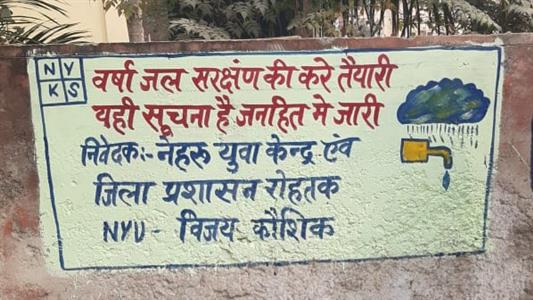 NY
KS
वर्षा जल सरक्षंण की करे तैयारी
यही सूचना है जनहित मे जारी
निवेदकः- नेहरू युवा केन्द्र एंव
जिला प्रशासन रोहतक
NYV- विजय कौशिक